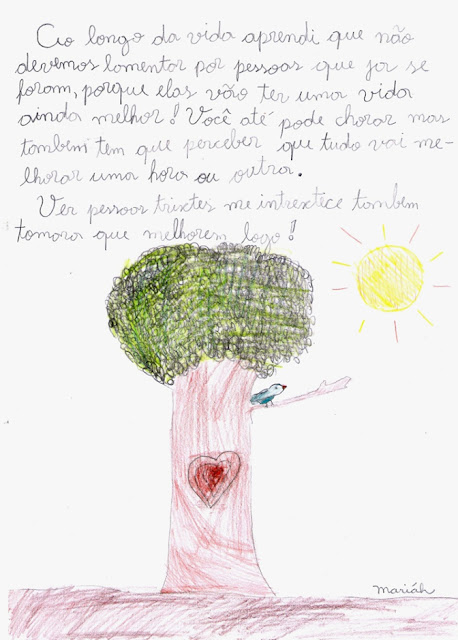 Ao longo da vida aprendi que não
devemos lamentar por pessoas que já se
foram, porque elas vão ter uma vida
ainda melhor! Você até pode chorar mas
também tem que perceber que tudo vai me-
lhorar uma hora ou outra.
Ver pessoas trixtes me intrextece também
tomara que melhorem logo!
mariáh